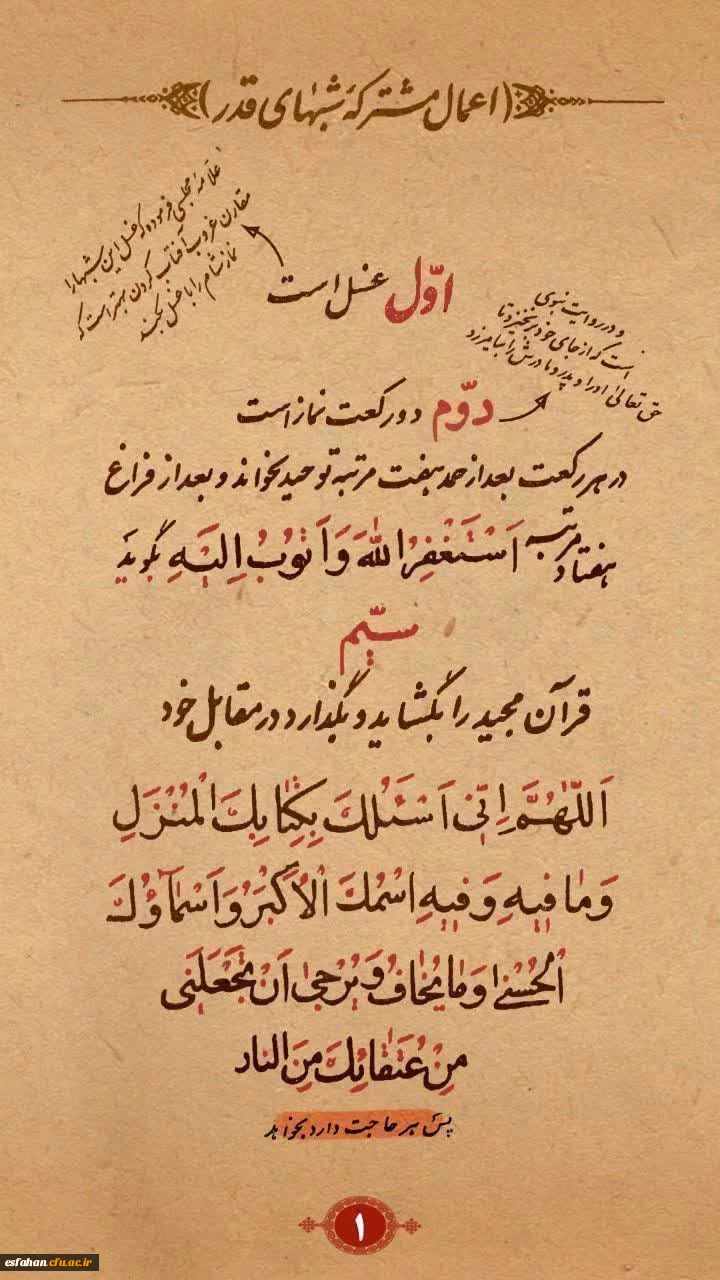 (اعمال مشترکهٔ شبهای قدر)
اوّل غسل است
علّامه مجلسی فرموده که غسل این شبها را
مقارن غروب آفتاب کردن بهتر است که
نماز شام را با غسل بکند
دوّم دو رکعت نماز است
و در روایت نبوی
است که از جای خود برنخیزد تا
حق تعالی او را و پدر و مادرش را بیامرزد
در هر رکعت بعد از حمد هفت مرتبه توحید بخواند و بعد از فراغ
هفتاد مرتبه اَسْتَغْفِرُ اللهَ وَ اَتُوبُ اِلَیْهِ بگوید
سیّم
قرآن مجید را بگشاید و بگذارد در مقابل خود
اَللّٰهُمَّ اِنّی اَسْئَلُکَ بِکِتابِکَ الْمُنْزَلِ
وَما فیهِ وَ فیهِ اسْمُکَ الْاَکْبَرُ وَ اَسْمآؤُکَ
الْحُسْنیٰ وَما یُخافُ وَ یُرْجیٰ اَنْ تَجْعَلَنی
مِنْ عُتَقائِکَ مِنَ النار
پس هر حاجت دارد بخواهد
۱
esfahan.cfu.ac.ir